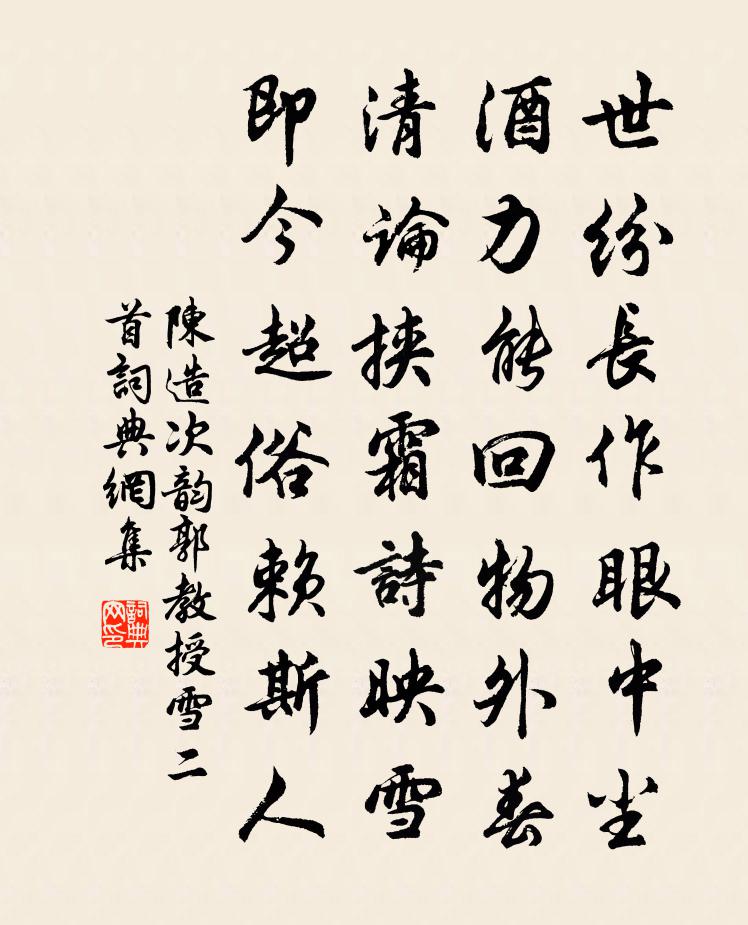 世紛長作眼中尘
酒力能回物外春
清論挾霜詩映雪
即今超俗賴斯人
陳造次韵郭教授雪二
首詞典網集
詞典网印